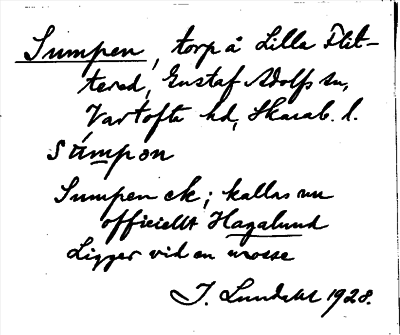 Sumpen, torp å Lilla Flit-
tered, Gustaf Adolfs sn,
Vartofta hd, Skarab. l.
Sumpən
Sumpen ek; kallas nu
officiellt Hagalund
Ligger vid en mosse
J. Lundahl 1928.